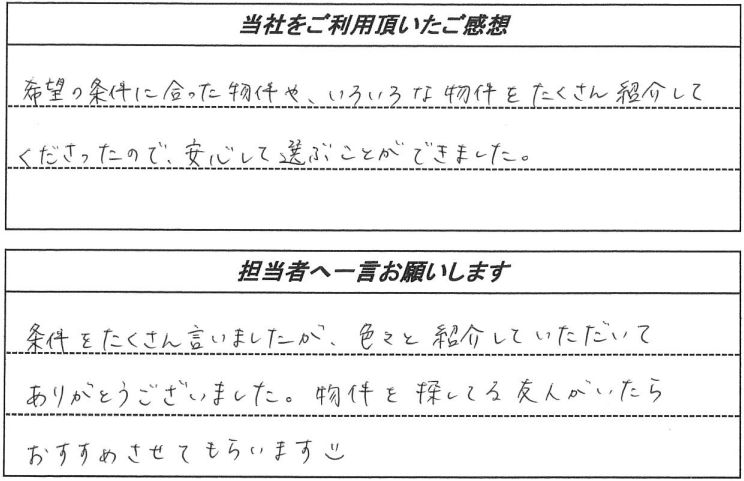 当社をご利用頂いたご感想
希望の条件に合った物件や、いろいろな物件をたくさん紹介して
くださったので、安心して選ぶことができました。
担当者へ一言お願いします
条件をたくさん言いましたが、色々と紹介していただいて
ありがとうございました。物件を探してる友人がいたら
おすすめさせてもらいます